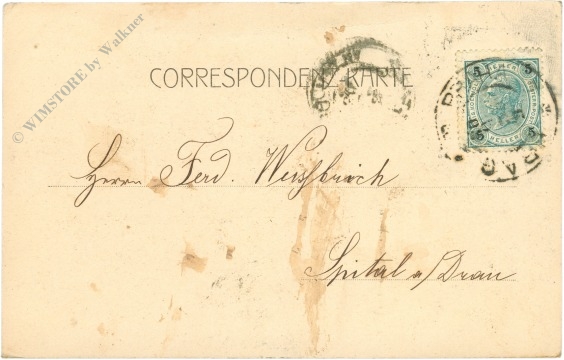 © WIMSTORE by Walkner
CORRESPONDENZ-KARTE
Herrn Ferd. Weissbrich
Spital a/Drau